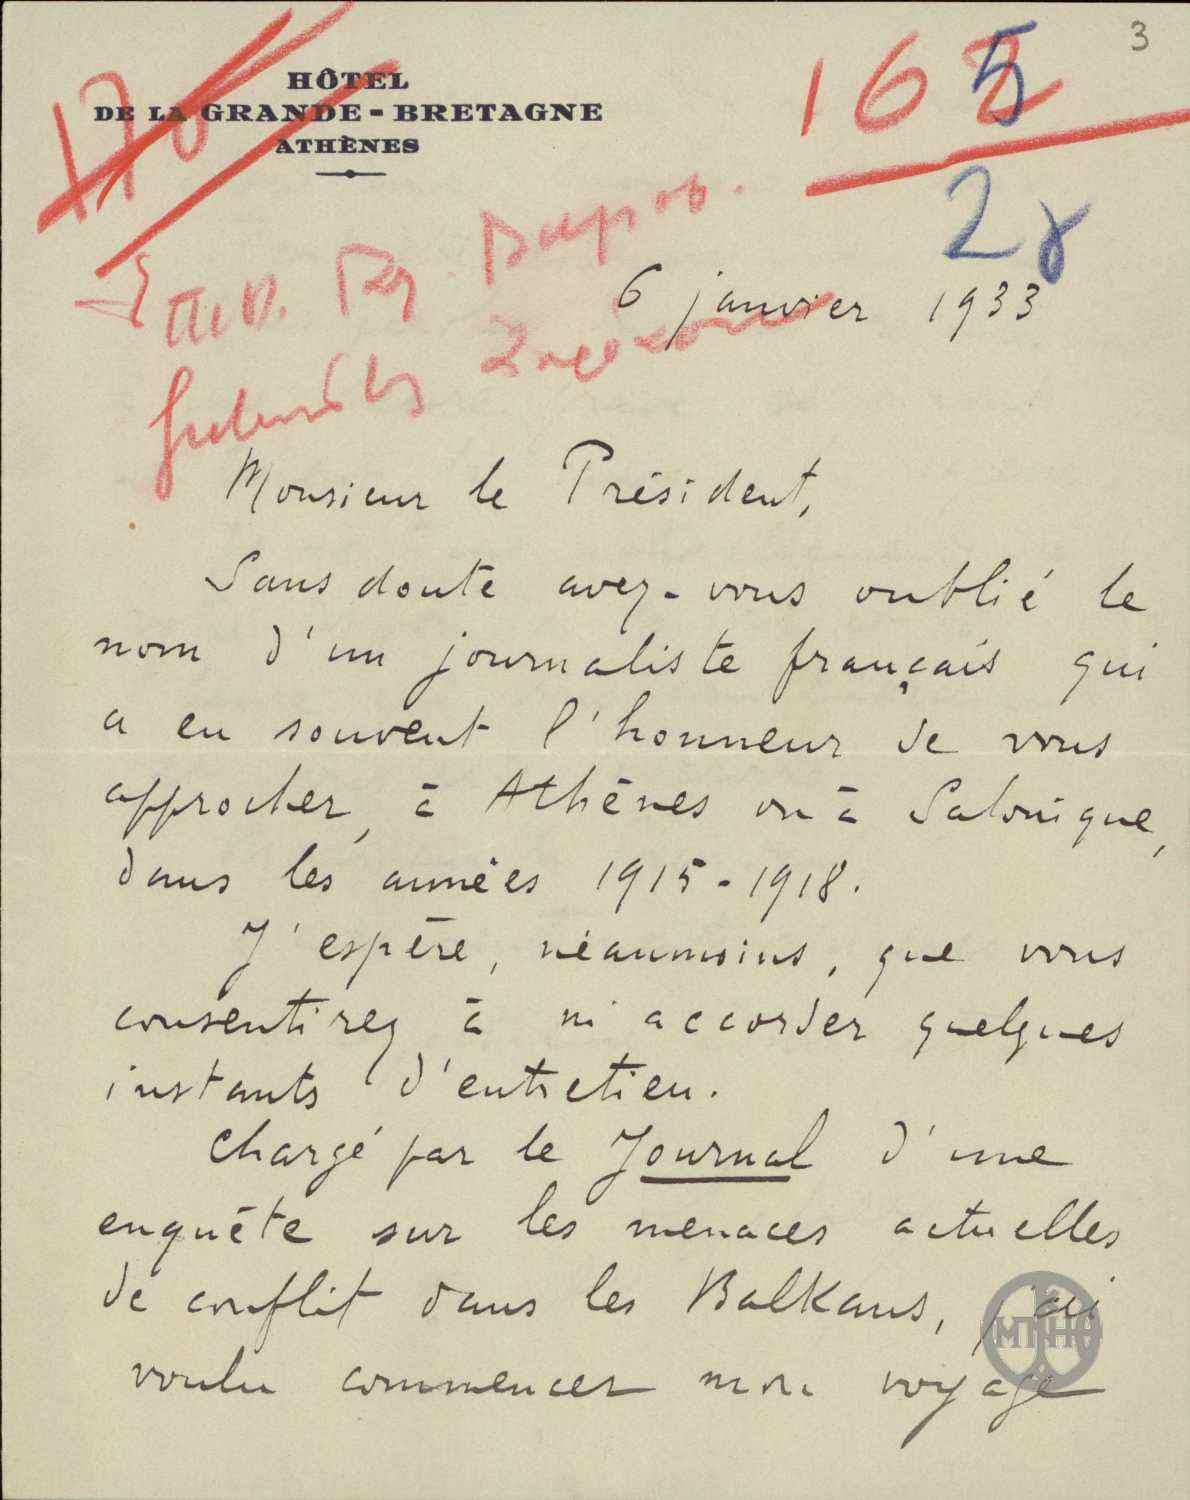 3
HÔTEL
DE LA GRANDE-BRETAGNE
ATHÈNES
165
2γ
6 janvier 1933
Monsieur le Président,
Sans doute avez-vous oublié le
nom d'un journaliste français qui
a eu souvent l'honneur de vous
approcher, à Athènes ou à Salonique,
dans les années 1915-1918.
J'espère, néanmoins, que vous
consentirez à m'accorder quelques
instants d'entretien.
Chargé par le Journal d'une
enquête sur les menaces actuelles
de conflit dans les Balkans, j'ai
voulu commencer mon voyage